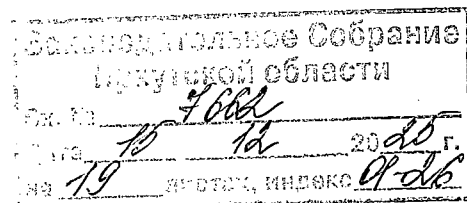 Законодательное Собрание
Иркутской области
Вх. № 7662
Дата 15 12 2025 г.
на 19 листах, индекс 01-26